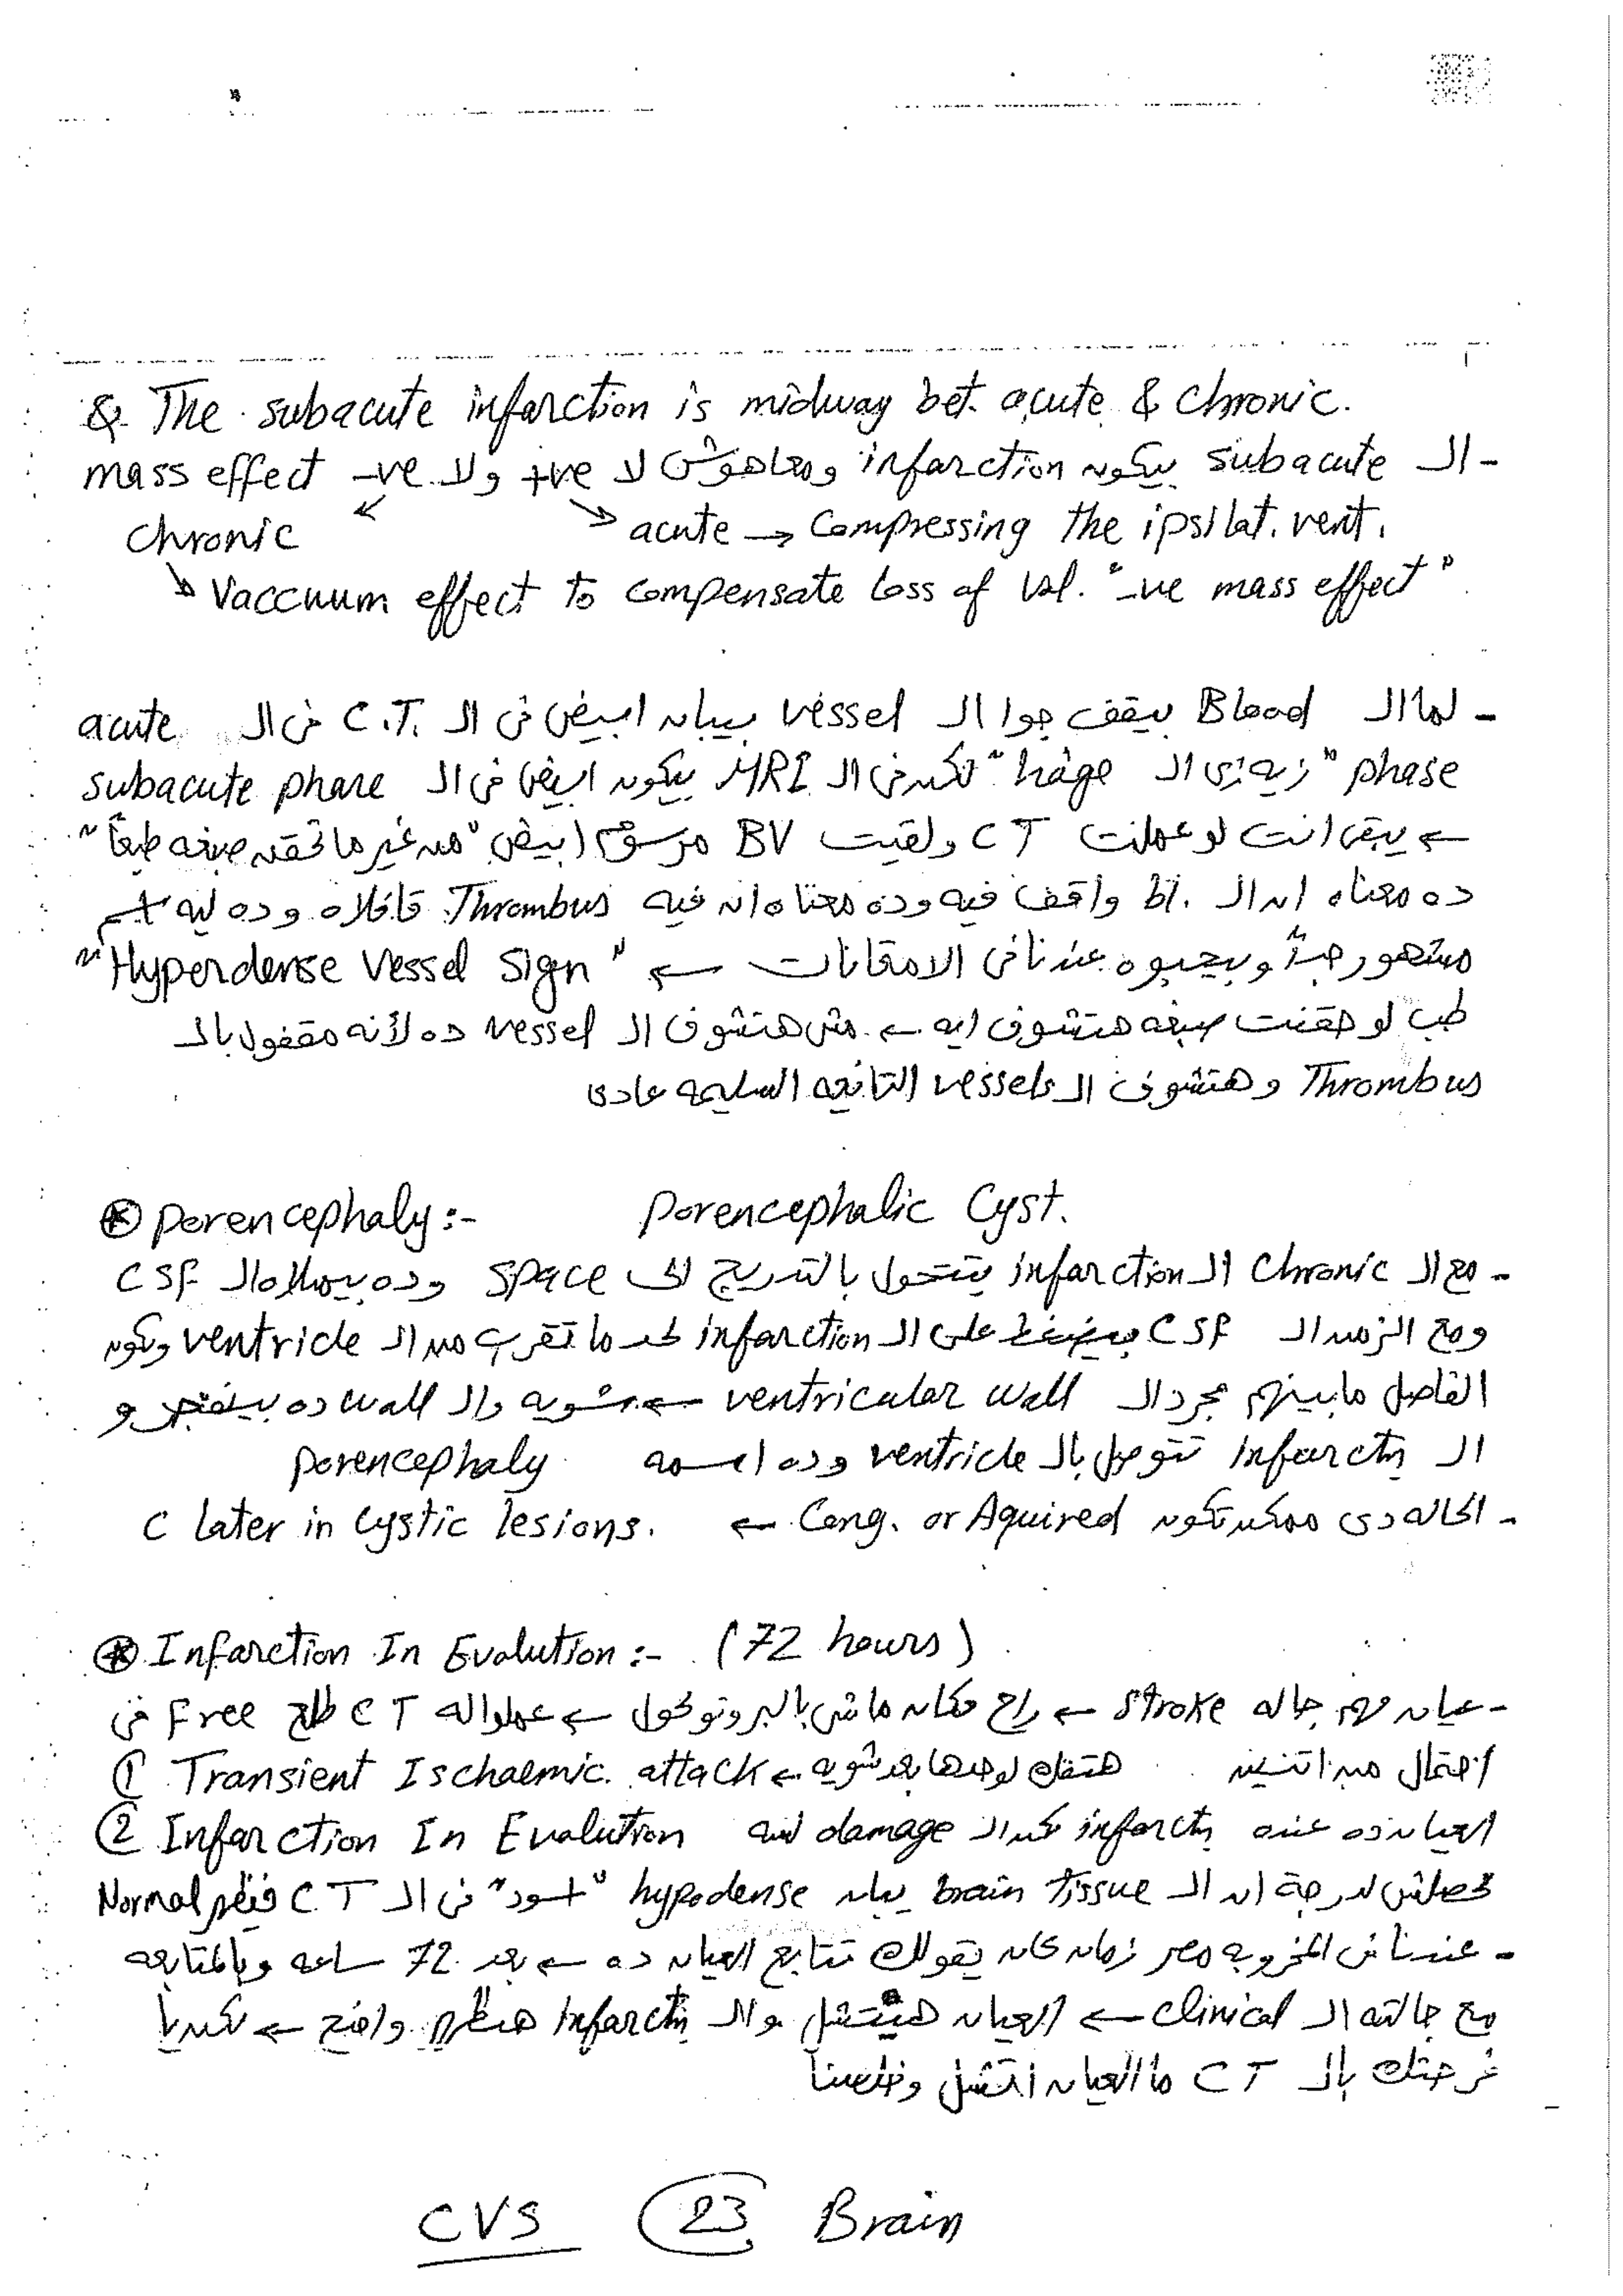 & The subacute infarction is midway bet. acute & chronic.
- الـ subacute بيكون infarction ومعاهوش لا +ve ولا -ve mass effect
chronic acute → Compressing the ipsilat. vent.
↘ Vaccuum effect to compensate loss of vol. "-ve mass effect"
- لما الـ Blood بيقف جوا الـ vessel بيبان ابيض فى الـ C.T. فى الـ acute
phase "زيه زى الـ hage" لكن فى الـ MRI بيكون ابيض فى الـ subacute phase
← يبقى انت لو عملت CT ولقيت BV مرسوم ابيض "من غير ما تحقن صبغه طبعاً"
ده معناه ان الـ واقف فيه وده معناه انه فيه Thrombus قافلاه وده ليه اسم
مشهور جداً وبيجيبوه عندنا فى الامتحانات ← "Hyperdense Vessel Sign"
طب لو حقنت صبغه هتشوف ايه ← مش هتشوف الـ vessel ده لأنه مقفول بالـ
Thrombus وهتشوف الـ vessels التانيه السليمه عادى
⊛ Porencephaly :- Porencephalic Cyst.
- مع الـ Chronic الـ infarction بيتحول بالتدريج الى space وده بيملاه الـ CSF
ومع الزمن الـ CSF بيضغط على الـ infarction لحد ما تقرب من الـ ventricle ويكون
الفاصل ما بينهم مجرد الـ ventricular wall ← شويه والـ wall ده بينفجر و
الـ infarctn تتوصل بالـ ventricle وده اسمه porencephaly
- الحاله دى ممكن تكون Cong. or Aquired ← C later in Cystic lesions.
⊛ Infarction In Evolution :- (72 hours)
- عيان جاله stroke ← راح مكان ماشى بالبروتوكول ← عملواله CT طلع Free فى
احتمال من اتنين
① Transient Ischaemic attack ← هتفك لوحدها بعد شويه
② Infarction In Evolution العيان ده عنده infarctn لكن الـ damage لسه
محصلش لدرجة ان الـ brain tissue يبان hypodense "اسود" فى الـ CT فيظهر Normal
- عندنا فى مصر زمان كان يقولك تتابع العيان ده ← بعد 72 ساعه وبالمتابعه
مع حالته الـ clinical ← العيان هيتشل والـ infarctn هتظهر واضح ←
فرحتك بالـ CT ما العيان اتشل وخلصنا
CVS 23 Brain